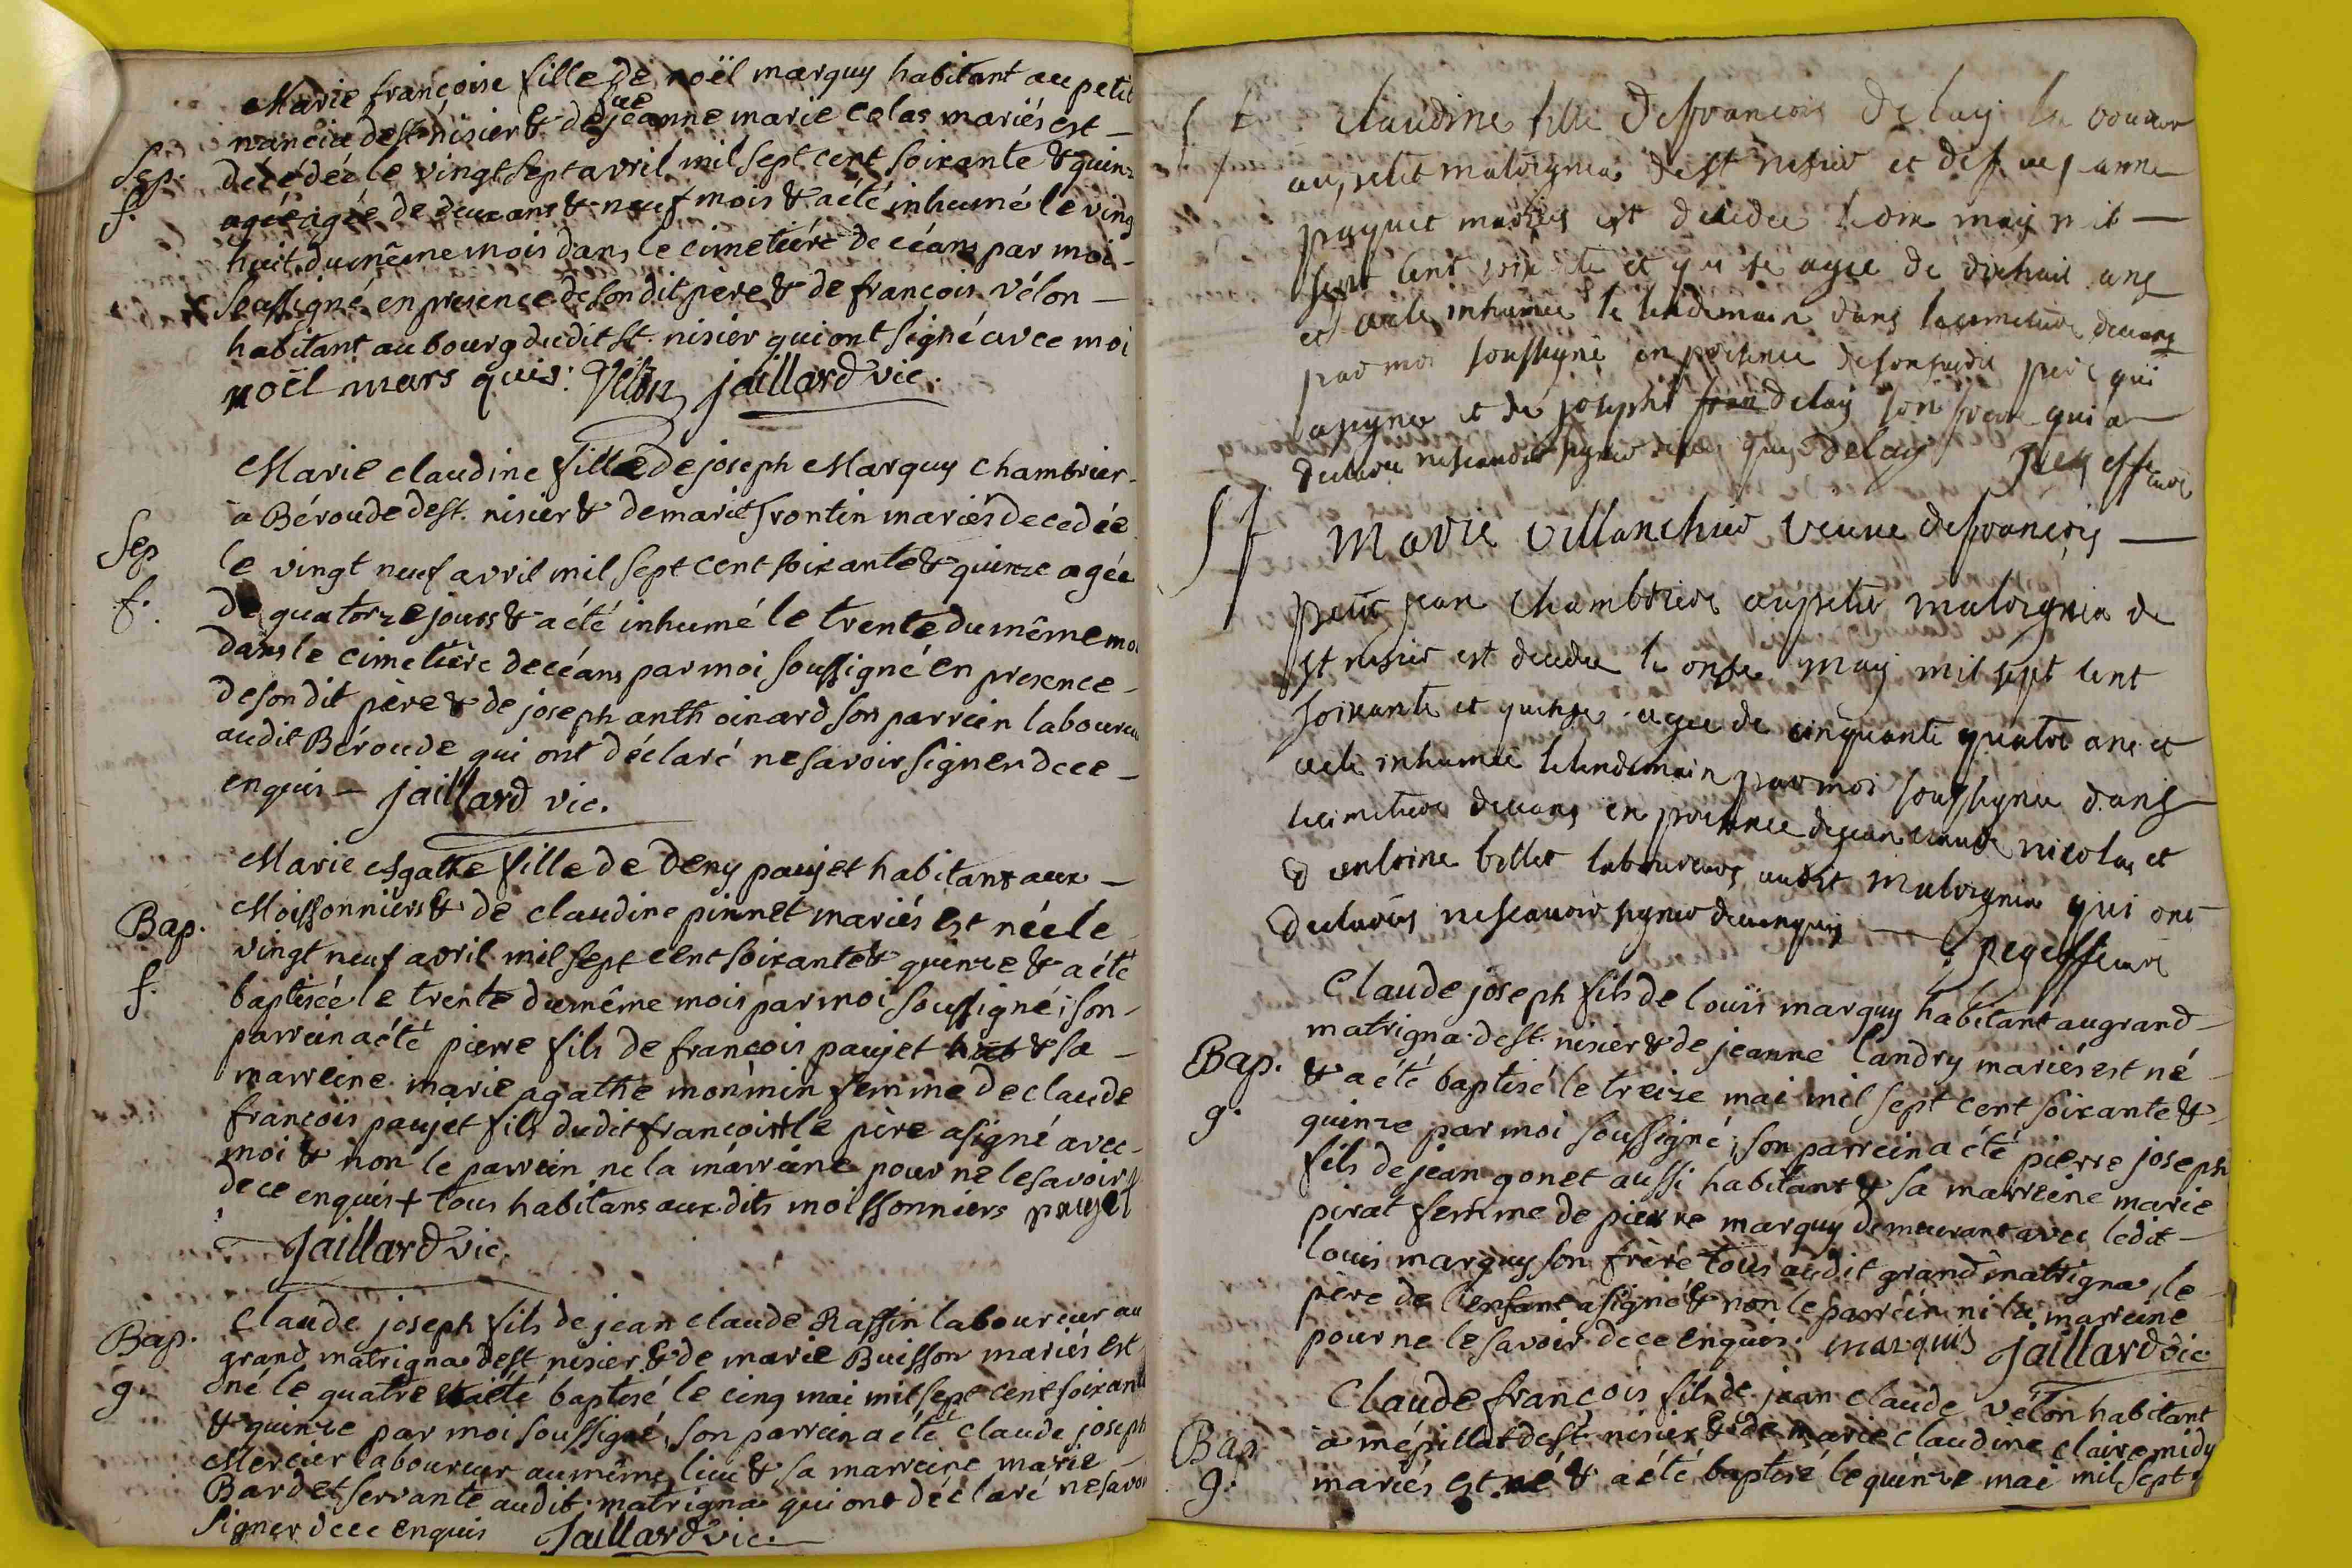 Marie françoise fille de noël marguy habitant au petit
nancia de st. nisier & de fue jeanne marie colas mariés est —
Sep. f. décédée le vingt sept avril mil sept cent soixante & quin-
agée agée de deux ans & neuf mois & a été inhumé le ving
huit du même mois dans le cimetière de céans par moi -
soussigné en presence de son dit père & de françois vélon —
habitant au bourg du dit st. nisier qui ont signé avec moi
noël mars quis: Vélon jaillard vic.
Marie claudine fille de joseph Marguy chambrier -
à Béroude de st. nisier & de marie frontin mariés decedée
Sep f. le vingt neuf avril mil sept cent soixante & quinze agée
de quatorze jours & a été inhumé le trente du même moi
dans le cimetière de céans par moi soussigné en presence -
de son dit père & de joseph anthoinard son parrein laboureur
audit Béroude qui ont déclaré ne savoir signer de ce —
enquis — jaillard vic.
Marie Agathe fille de Deny paujet habitant aux —
Bap. f. Moissonniers & de claudine pinnet mariés est née le
vingt neuf avril mil sept cent soixante & quinze & a été
baptisée le trente du même mois par moi soussigné ; son -
parrein a été pierre fils de françois paujet hab & sa —
marreine marie agathe monmin femme de claude
françois paujet fils dudit françois le père a signé avec -
moi & non le parrein ne la marreine pour ne le savoir
de ce enquis + tous habitans aux dits moissonniers paujet
Jaillard vic.
Claude joseph fils de jean claude Raffin laboureur au
Bap. g. grand matrigna de st. nisier & de marie Buisson mariés est
né le quatre & a été baptisé le cinq mai mil sept cent soixante
& quinze par moi soussigné, son parrein a été claude joseph
Mercier laboureur au même lieu & sa marreine marie —
Bardet servante audit matrigna qui ont déclaré ne savoir
signer de ce enquis Jaillard vic.
S f claudine fille de françois delay
au petit matrignia de st nisier et de fue janne
paquet mariés est decedee le onze may mil —
sept cent soixante et quinze agee de dixhuit ans
et a ete inhumee le lendemain dans le cimetiere deceans
par moi soussigné en presence de son susdit pere qui
a signer et de joseph fran delay son frere qui a
declaré ne scavoir signer de ce enquis delay
S f Marie villanchier veuve de françois —
petit jean chambriere au petit matrignia de
st nisier est decedee le onze may mil sept cent
soixante et quinze agee de cinquante quatre ans et
a ete inhumee le lendemain par moi soussignee dans
le cimetiere deceans en presence de jean claude nicolas et
d antoine billet laboureurs audit matrignia qui ont
declarés ne scavoir signer de ce enquis —
Claude joseph fils de louis marguy habitant au grand —
Bap. g. matrigna de st. nisier & de jeanne landry mariés est né
& a été baptisé le treize mai mil sept cent soixante &
quinze par moi soussigné ; son parrein a été pierre joseph
fils de jean gonet aussi habitant & sa marreine marie
pirat femme de pierre marguy demeurant avec ledit —
louis marguy son frère tous audit grand matrigna, le
père de l'enfant a signé & non le parrein ni la marreine
pour ne le savoir de ce enquis. marquis Jaillard vic
Claude françois fils de jean claude vélon habitant
Bap g. à mépillat de st. nisier & de marie claudine claire midy
mariés est né & a été baptisé le quinze mai mil sept